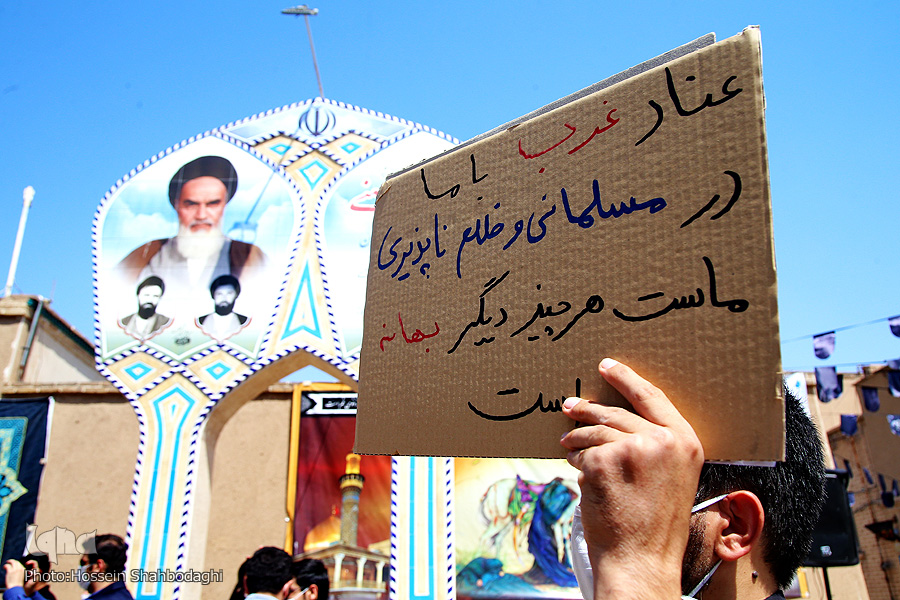 عناد غرب با ما
در مسلمانی و ظلم ناپذیری
ماست هرچیز دیگر بهانه
است
iqna
Photo:Hossein Shahbodaghi